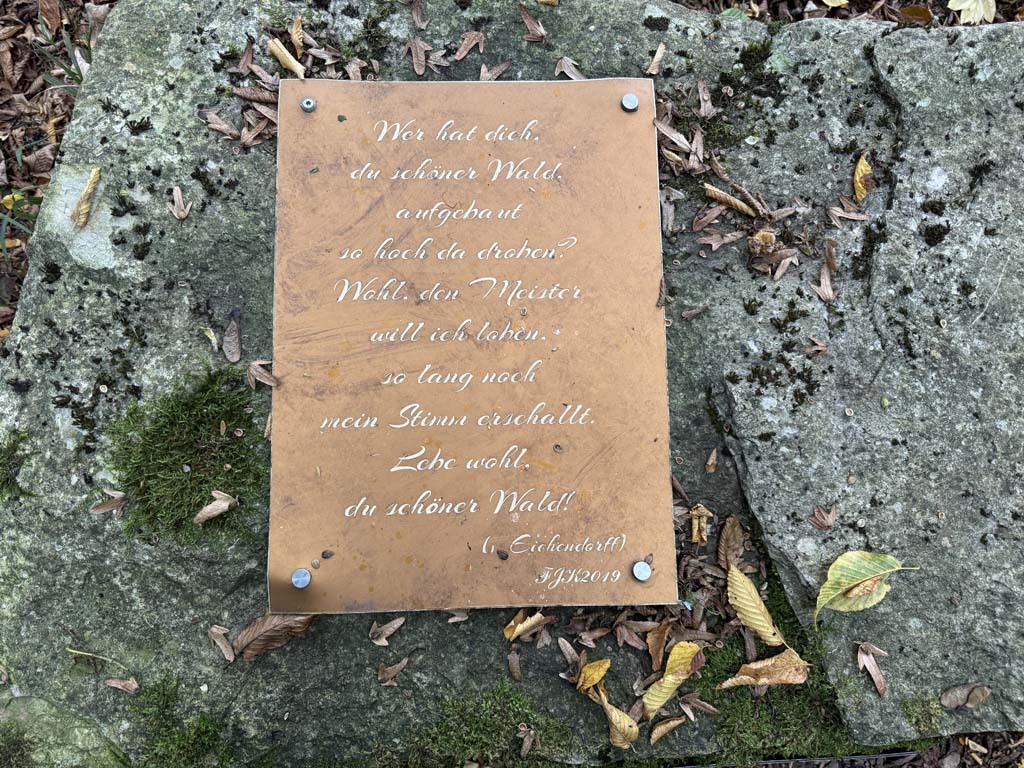 Wer hat dich,
du schöner Wald,
aufgebaut
so hoch da droben?
Wohl, den Meister
will ich loben,
so lang noch
mein Stimm erschallt.
Lebe wohl,
du schöner Wald!
(v. Eichendorff)
FJK2019